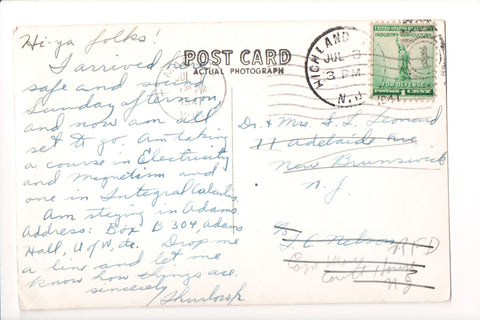 Hi-ya folks!
I arrived here
safe and sound
Sunday afternoon,
and now am all
set to go. Am taking
a course in Electricity
and Magnetism and
one in Integral Calculus.
Am staying in Adams.
Address: Box B 304, Adams
Hall, U of W, etc. Drop me
a line and let me
know how things are.
Sincerely
POST CARD
ACTUAL PHOTOGRAPH
HIGHLAND
JUL 3
3 PM
N.J.
1941
UNITED STATES
INDUSTRY AGRICULTURE
FOR DEFENSE
1 CENT
Dr. & Mrs. F. L. Leonard
71 Adelaide Ave
New Brunswick
N. J.
% L. C. Nelson
RFD
Cape May
Court House
N J